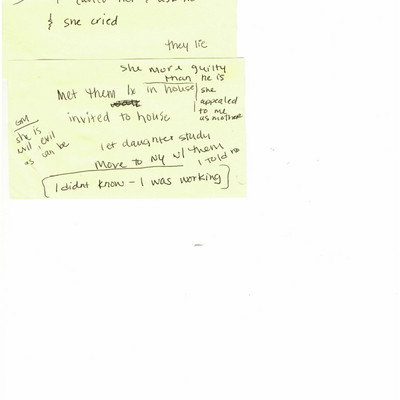 & she cried
they lie
she more guilty
than he is
Met them 1x in house
she
appealed
to me
as mother
invited to house
GM
she is
evil
as can be
let daughter study
Move to NY w/ them
I told
I didnt know - I was working